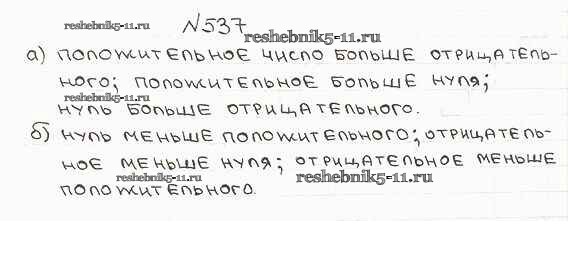 reshebnik5-11.ru
№537
reshebnik5-11.ru
а) положительное число больше отрицатель-
ного; положительное больше нуля;
reshebnik5-11.ru
нуль больше отрицательного.
б) нуль меньше положительного; отрицатель-
ное меньше нуля; отрицательное меньше
reshebnik5-11.ru
reshebnik5-11.ru
положительного.